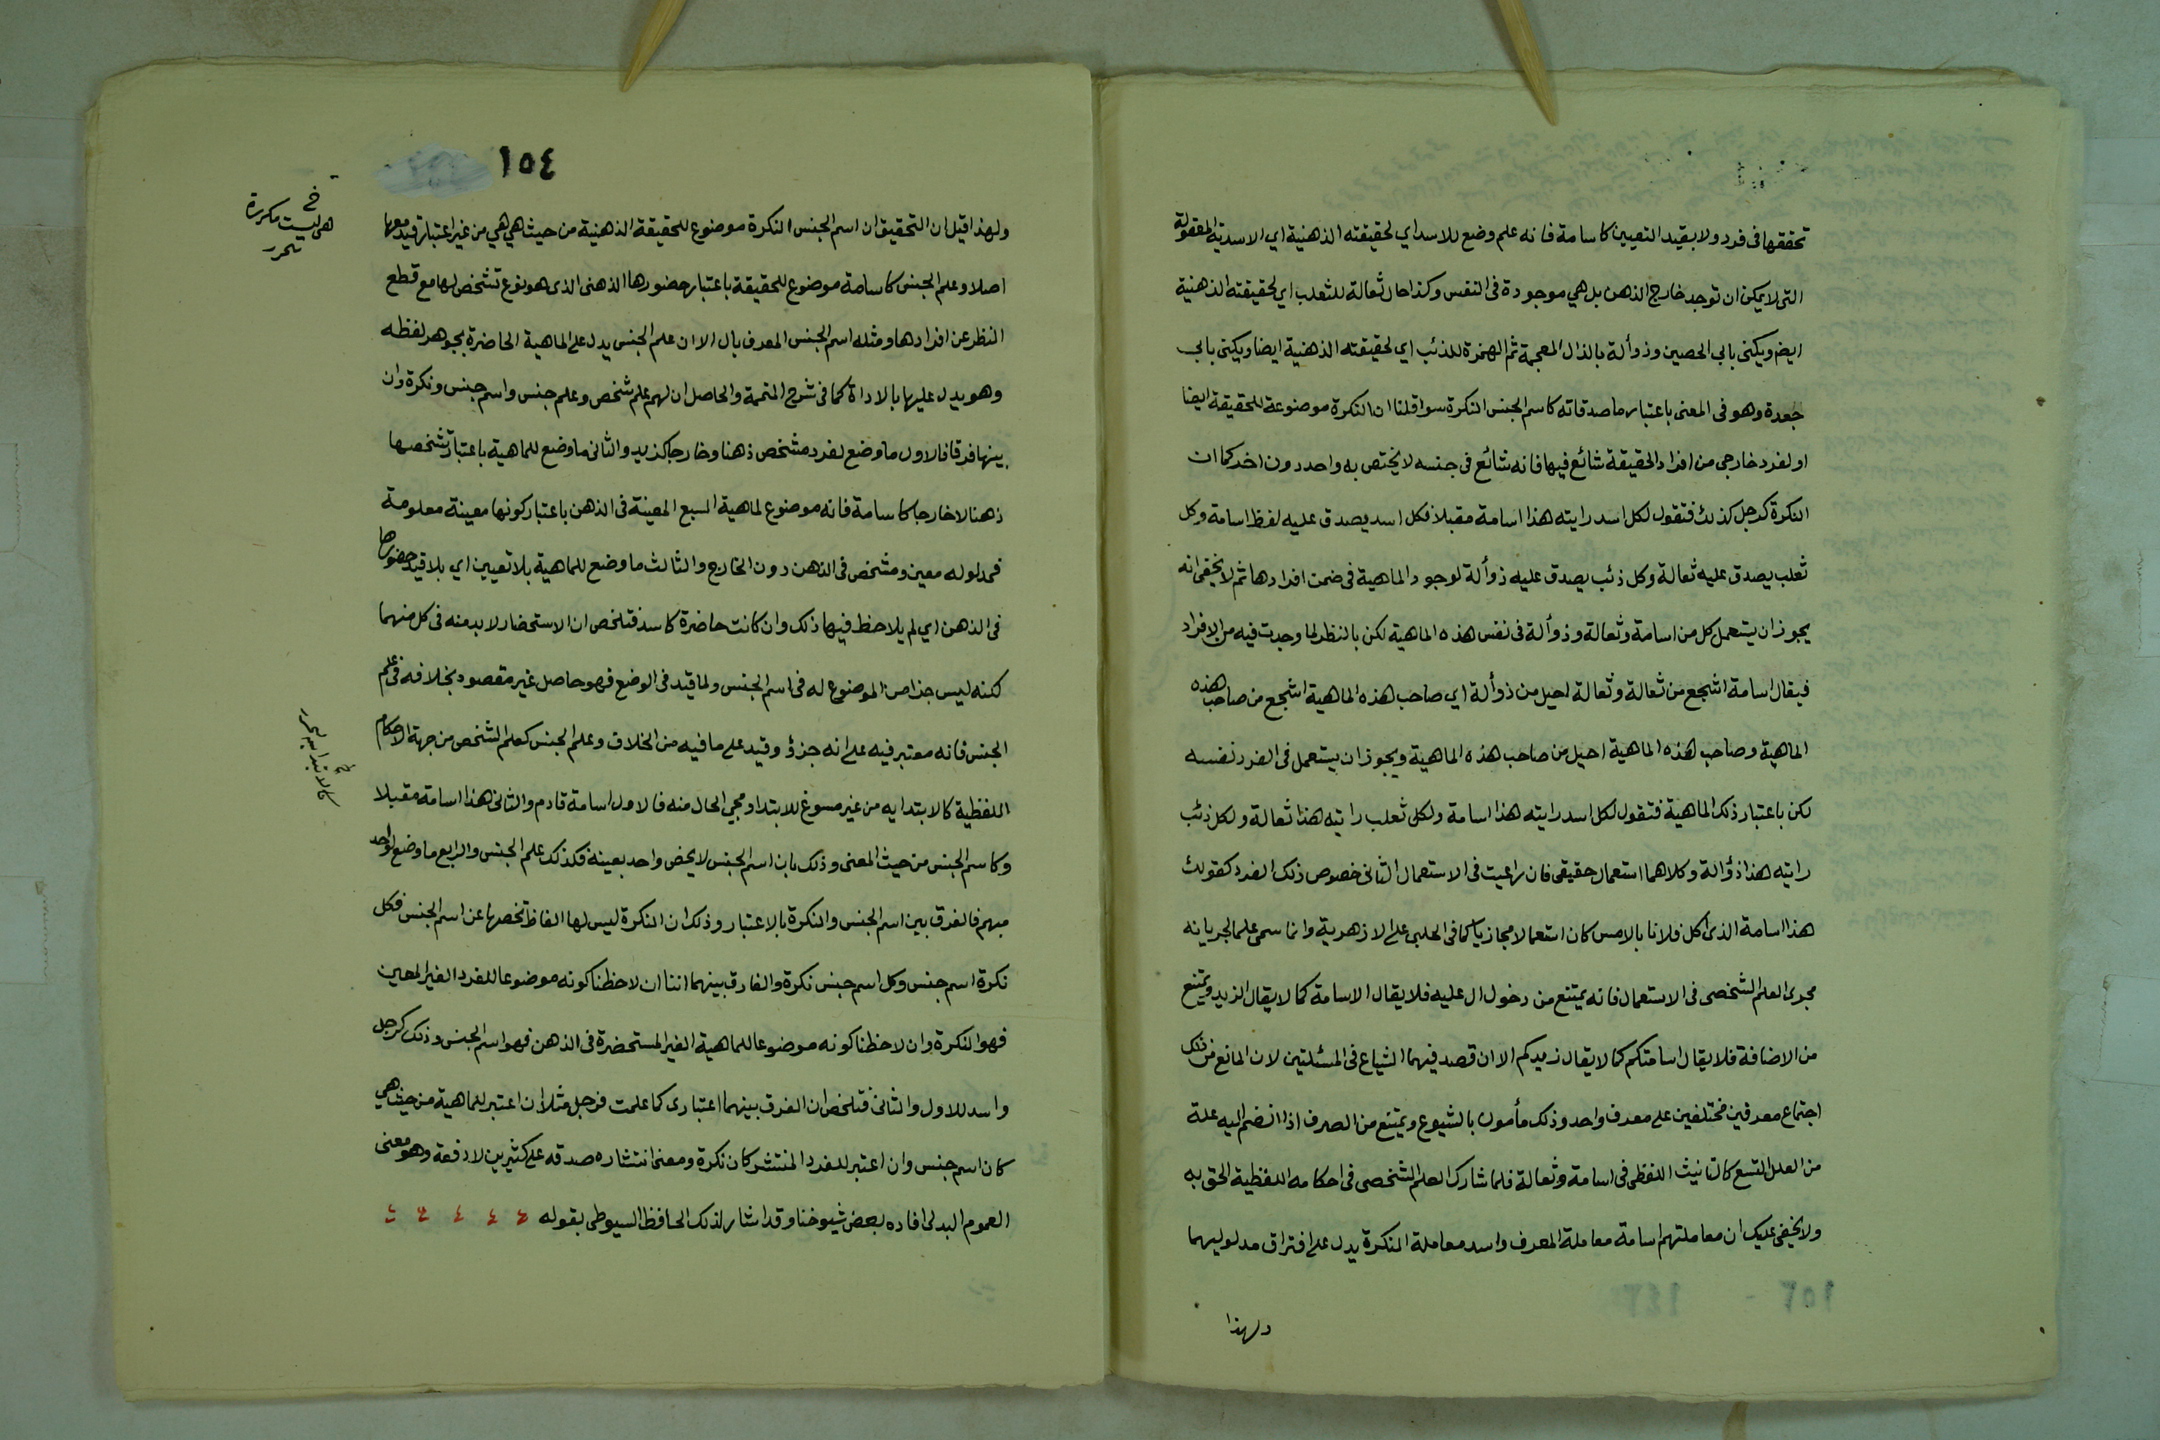 تحققها في فرد ولا بقيد التعيين كاسامة فانه علم وضع للاسد اي لحقيقته الذهنية اي الاسدية المعقولة
التي لا يمكن ان توجد خارج الذهن بل هي موجودة في النفس وكذا حال ثعالة للثعلب اي لحقيقته الذهنية
ايض ويكنى بابي الحصين وذوألة بالذال المعجمة ثم الهمزة للذئب اي لحقيقته الذهنية ايضا ويكنى بابي
جعدة وهو في المعنى باعتبار ماصدقاته كاسم الجنس النكرة سوا قلنا ان النكرة موضوعة للحقيقة ايضا
او لفرد خارجي من افراد الحقيقة شائع فيها فانه شائع في جنسه لا يختص به واحد دون اخر كما ان
النكرة كرجل كذلك فتقول لكل اسد رايته هذا اسامة مقبلا فكل اسد يصدق عليه لفظ اسامة وكل
ثعلب يصدق عليه ثعالة وكل ذئب يصدق عليه ذوألة لوجود الماهية في ضمن افرادها ثم لا يخفى انه
يجوز ان يستعمل كل من اسامة وثعالة وذوألة في نفس هذه الماهية لكن بالنظر لما وجدت فيه من الافراد
فيقال اسامة اشجع من ثعالة وثعالة احيل من ذوألة اي صاحب هذه الماهية اشجع من صاحب هذه
الماهية وصاحب هذه الماهية احيل من صاحب هذه الماهية ويجوز ان يستعمل في الفرد نفسه
لكن باعتبار ذلك الماهية فتقول لكل اسد رايته هذا اسامة ولكل ثعلب رايته هذا ثعالة ولكل ذئب
رايته هذا ذؤالة وكلاهما استعمال حقيقي فان راعيت في الاستعمال الثاني خصوص ذلك الفرد كقولك
هذا اسامة الذي اكل فلانا بالامس كان استعمالا مجازيا كما في الحلبي على الازهرية وانما سمى علما لجريانه
مجرى العلم الشخصي في الاستعمال فانه يمتنع من دخول ال عليه فلا يقال الاسامة كما لا يقال الزيد ويمتنع
من الاضافة فلا يقال اسامتكم كما لا يقال زيدكم الا ان قصد فيهما الشياع في المسئلتين لان المانع من ذلك
اجتماع معرفين مختلفين على معرف واحد وذلك مأمون بالشيوع ويمتنع من الصرف اذا انضم اليه علة
من العلل التسع كالتانيث اللفظي في اسامة وثعالة فلما شارك العلم الشخصي في احكامه اللفظية الحق به
ولا يخفى عليك ان معاملتهم اسامة معاملة المعرف واسد معاملة النكرة يدل على افتراق مدلوليهما
ولهذا
١٥٤
ولهذا قيل ان التحقيق ان اسم الجنس النكرة موضوع للحقيقة الذهنية من حيث هي هي من غير اعتبار قيد معها
اصلا وعلم الجنس كاسامة موضوع للحقيقة باعتبار حضورها الذهني الذي هو نوع تشخص لها مع قطع
النظر عن افرادها ومثله اسم الجنس المعرف بال الا ان علم الجنس يدل على الماهية الحاضرة بجوهر لفظه
وهو يدل عليها بالاداة كما في شرح المتممة والحاصل ان لهم علم شخص وعلم جنس واسم جنس ونكرة وان
بينها فرقا فالاول ما وضع لفرد مشخص ذهنا وخارجا كزيد والثاني ما وضع للماهية باعتبار تشخصها
ذهنا لا خارجا كاسامة فانه موضوع لماهية السبع المعينة في الذهن باعتبار كونها معينة معلومة
فمدلوله معين ومشخص في الذهن دون الخارج والثالث ما وضع للماهية بلا تعيين اي بلا قيد حضورها
في الذهن اي لم يلاحظ فيها ذلك وان كانت حاضرة كاسد فتلخص ان الاستحضار لا بد منه في كل منهما
لكنه ليس جزا من الموضوع له في اسم الجنس ولما قيد في الوضع فهو حاصل غير مقصود بخلافه في علم
الجنس فانه معتبر فيه على انه جزؤ وقيد على ما فيه من الخلاف وعلم الجنس كعلم الشخص من جهة الاحكام
اللفظية كالابتدا به من غير مسوغ للابتدا ومجي الحال منه فالاول اسامة قادم والثاني هذا اسامة مقبلا
وكاسم الجنس من حيث المعنى وذلك بان اسم الجنس لا يخص واحد بعينه فكذلك علم الجنس والرابع ما وضع لواحد
مبهم فالفرق بين اسم الجنس والنكرة بالاعتبار وذلك ان النكرة ليس لها الفاظ تخصها عن اسم الجنس فكل
نكرة اسم جنس وكل اسم جنس نكرة والفارق بينهما اننا ان لاحظنا كونه موضوعا للفرد الغير المعين
فهو النكرة وان لاحظنا كونه موضوعا للماهية الغير المستحضرة في الذهن فهو اسم الجنس وذلك كرجل
واسد للاول والثاني فتلخص ان الفرق بينهما اعتباري كما علمت فرجل مثلا ان اعتبر للماهية من حيث هي
كان اسم جنس وان اعتبر للفرد المنتشر كان نكرة ومعنى انتشاره صدقه على كثيرين لا دفعة وهو معنى
العموم البدلي افاده بعض شيوخنا وقد اشار لذلك الحافظ السيوطي بقوله
هي ليست مكررة
تحرر
كالابتدا به تحرر